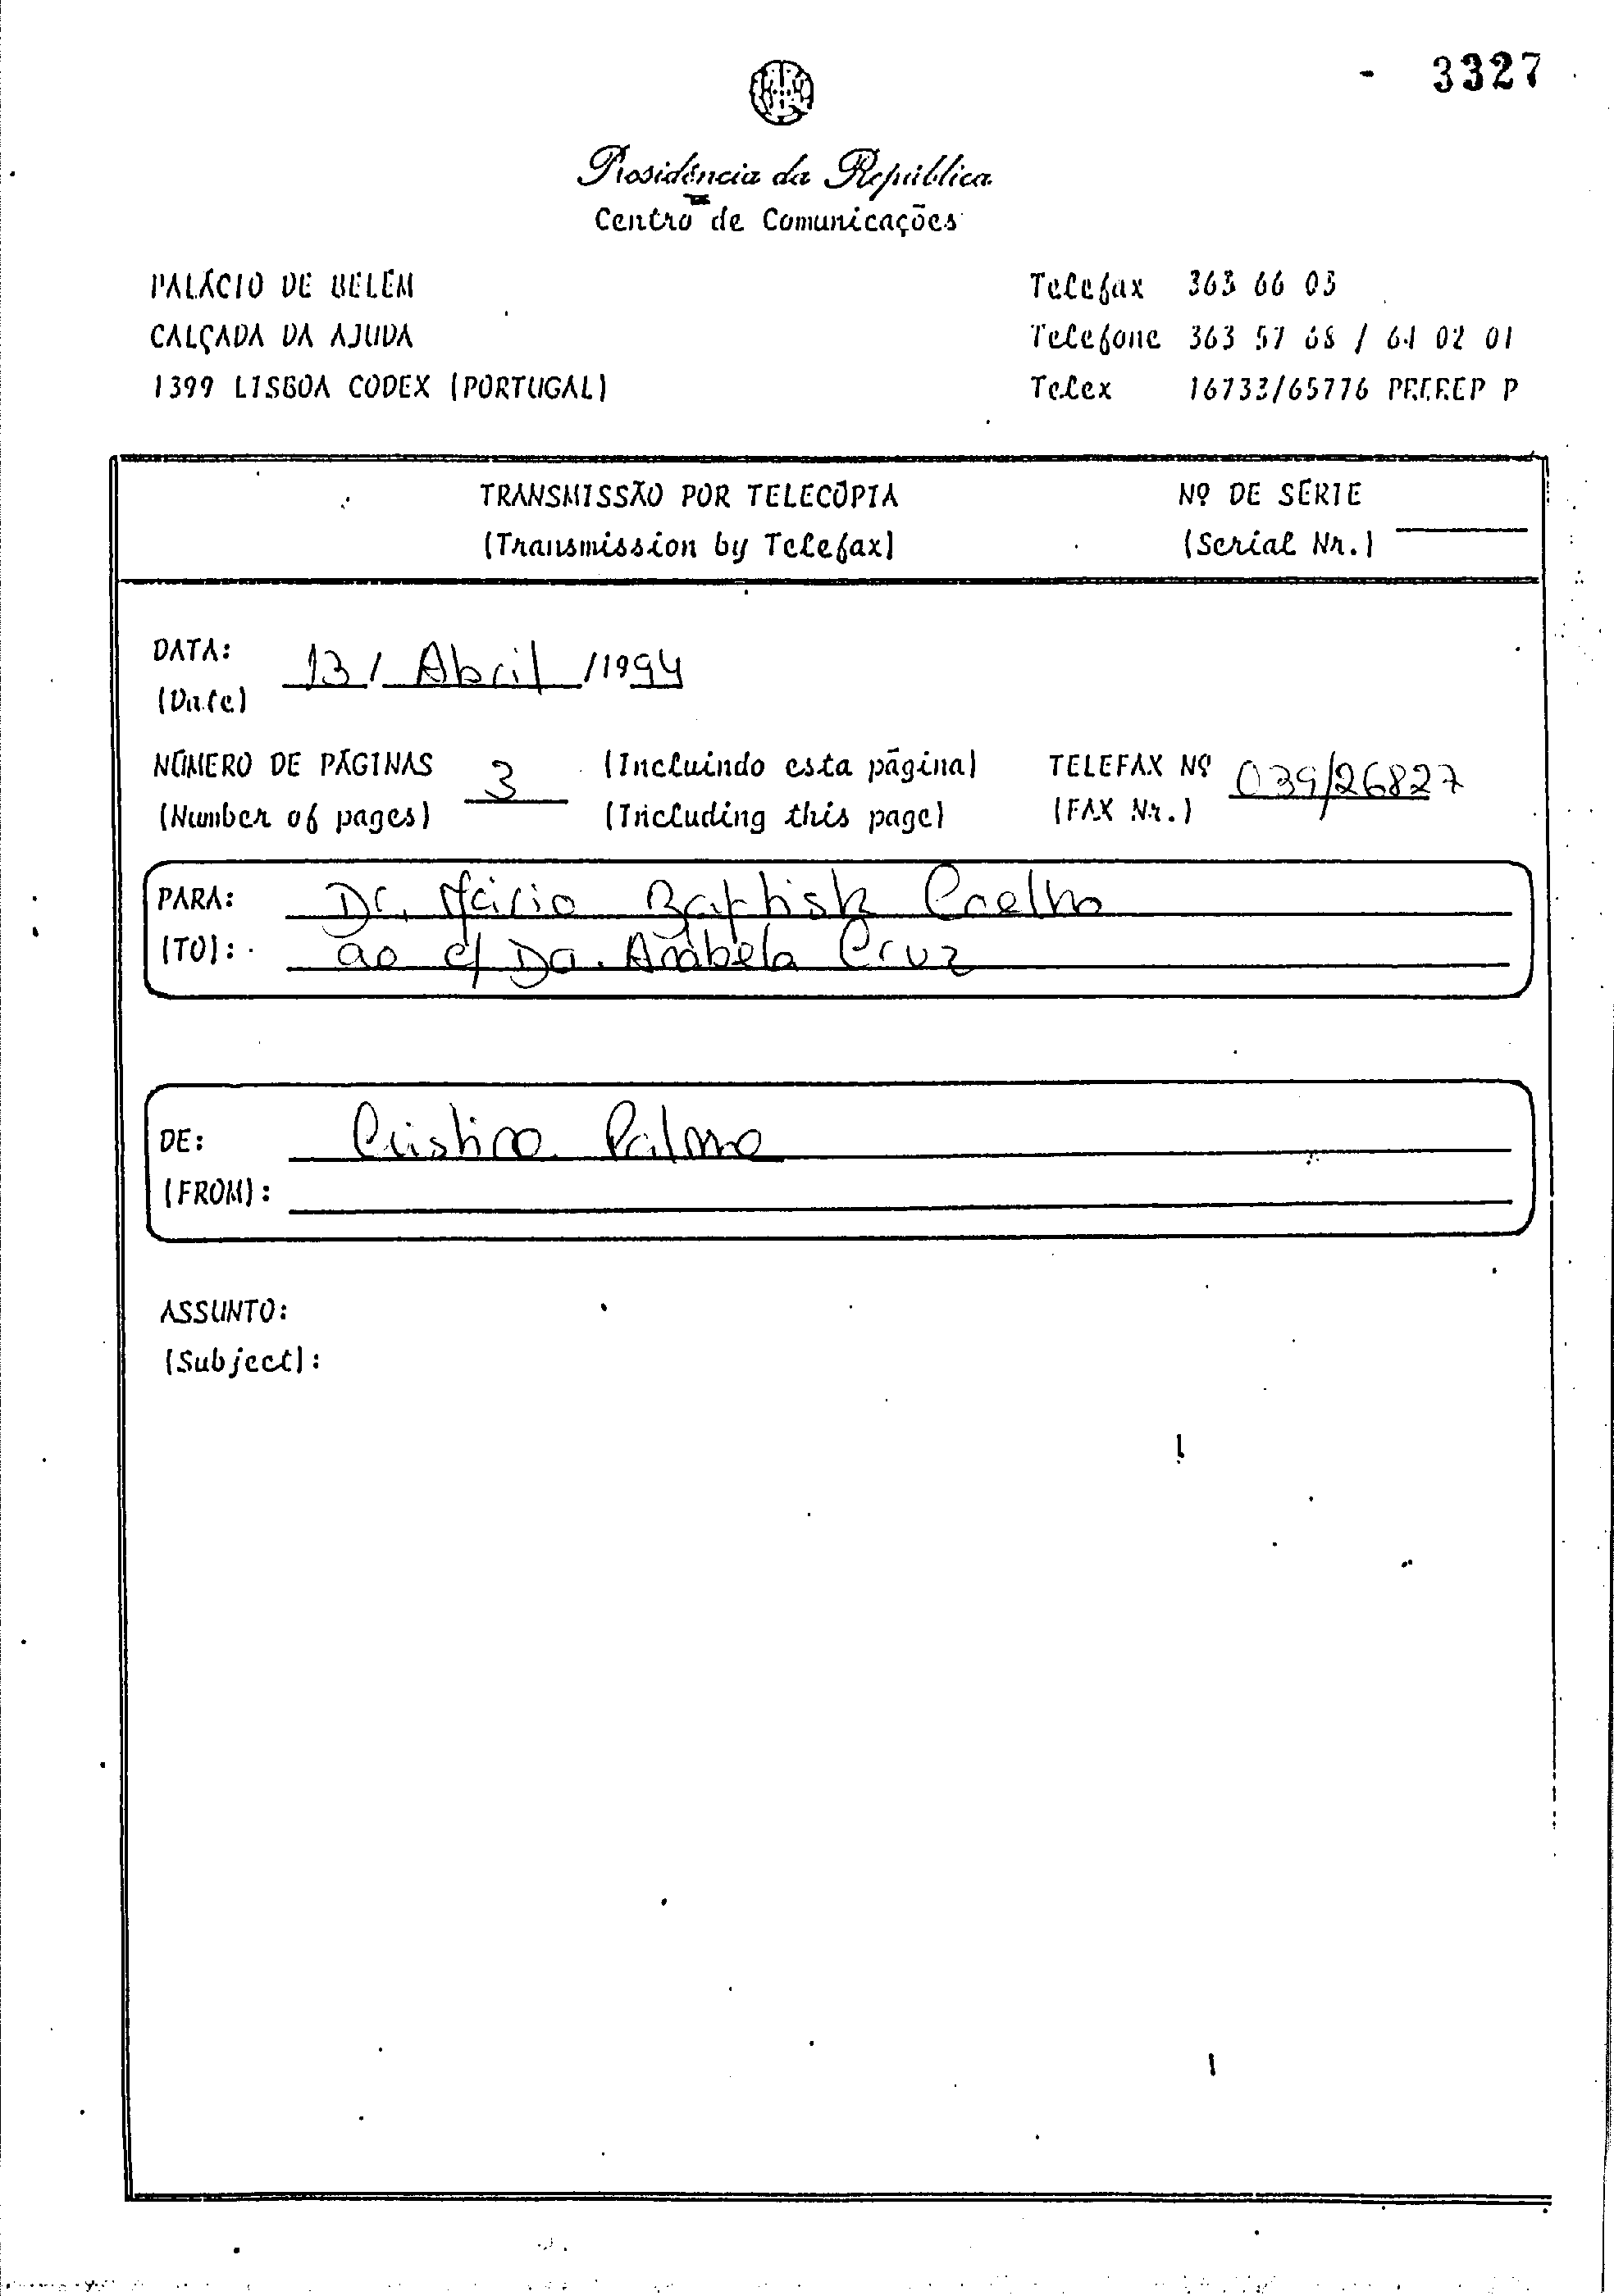 - 3327
Presidência da República
Centro de Comunicações
PALÁCIO DE BELÉM
CALÇADA DA AJUDA
1399 LISBOA CODEX (PORTUGAL)
Telefax 363 66 03
Telefone 363 57 68 / 64 02 01
Telex 16733/65776
TRANSMISSÃO POR TELECÓPIA
(Transmission by Telefax)
Nº DE SÉRIE
(Serial Nr.)
DATA: 13 / Abril / 1994
(Date)
NÚMERO DE PÁGINAS 3 (Incluindo esta página) TELEFAX Nº 039/26827
(Number of pages) (Including this page) (FAX Nr.)
PARA: Dr. Mário Baptista Coelho
(TO): ao c/ Da. Anabela Cruz
DE: Cristina Palma
(FROM):
ASSUNTO:
(Subject):